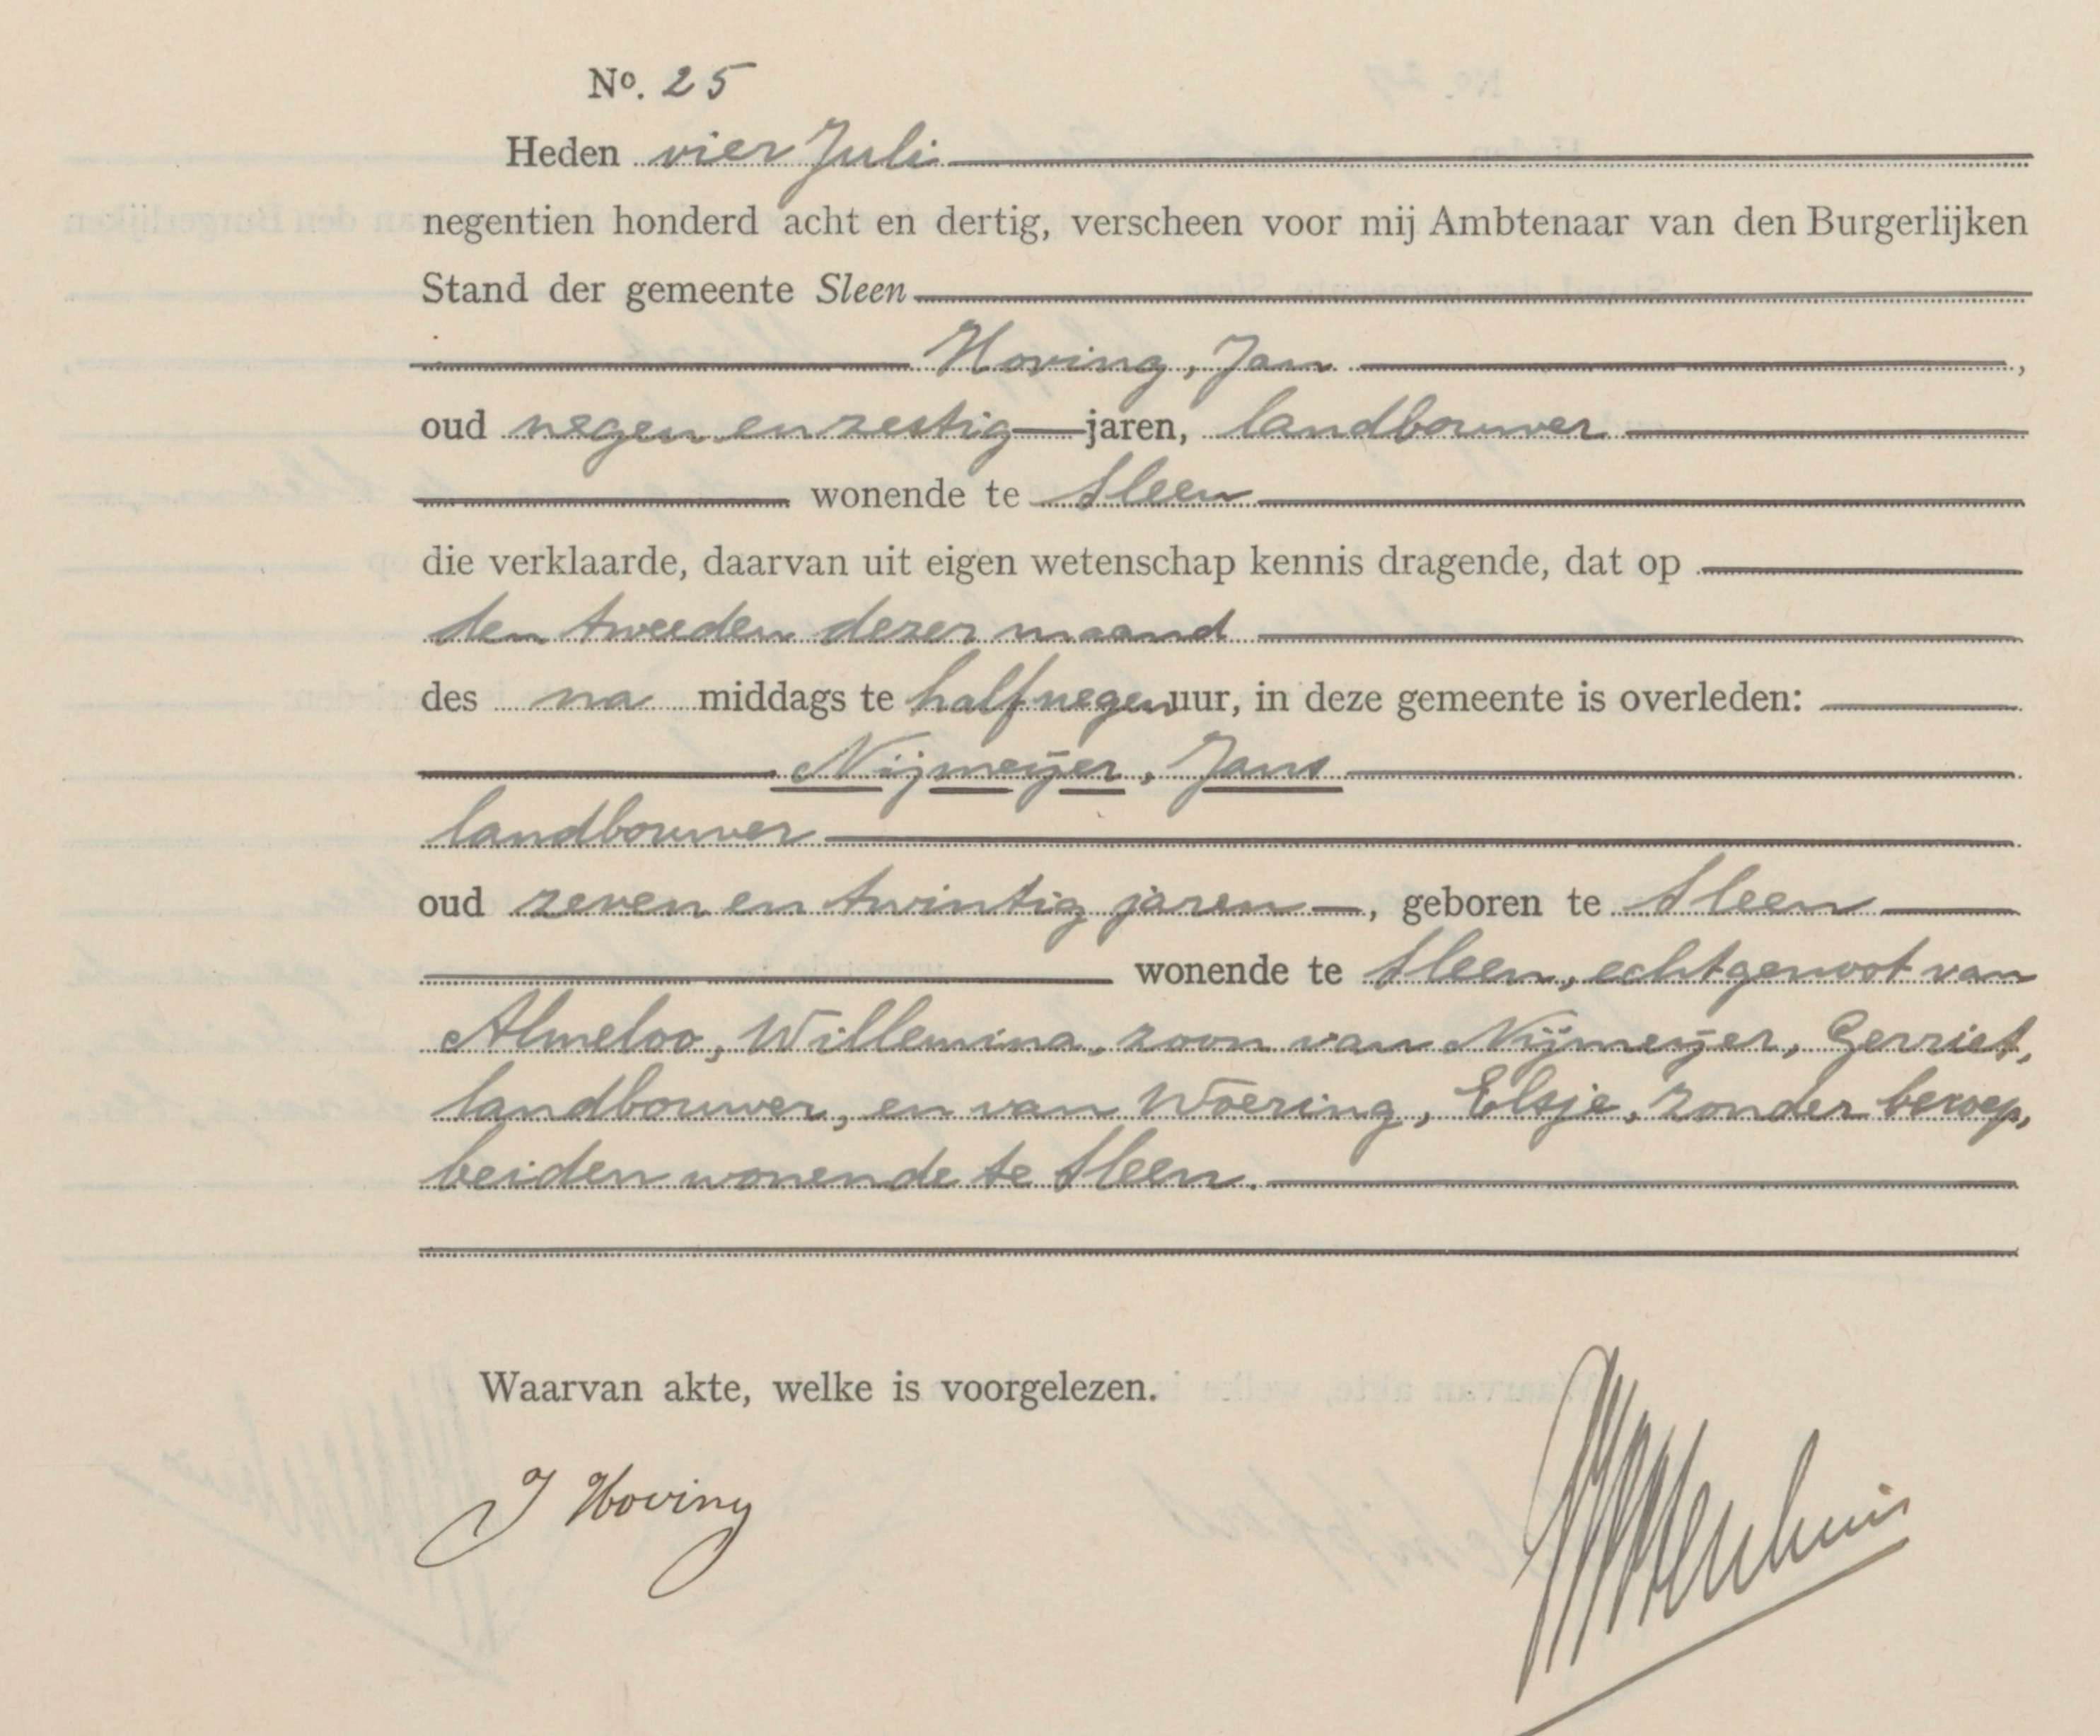 No. 25
Heden vier Juli
negentien honderd acht en dertig, verscheen voor mij Ambtenaar van den Burgerlijken
Stand der gemeente Sleen
Hoving, Jan ,
oud negen en zestig jaren, landbouwer
wonende te Sleen
die verklaarde, daarvan uit eigen wetenschap kennis dragende, dat op
den tweeden dezer maand
des na middags te half negen uur, in deze gemeente is overleden:
Nijmeijer, Jans
landbouwer
oud zeven en twintig jaren, geboren te Sleen
wonende te Sleen, echtgenoot van
Almeloo, Willemina, zoon van Nijmeijer, Gerriet,
landbouwer, en van Woering, Elsje, zonder beroep,
beiden wonende te Sleen.
Waarvan akte, welke is voorgelezen.
J Hoving